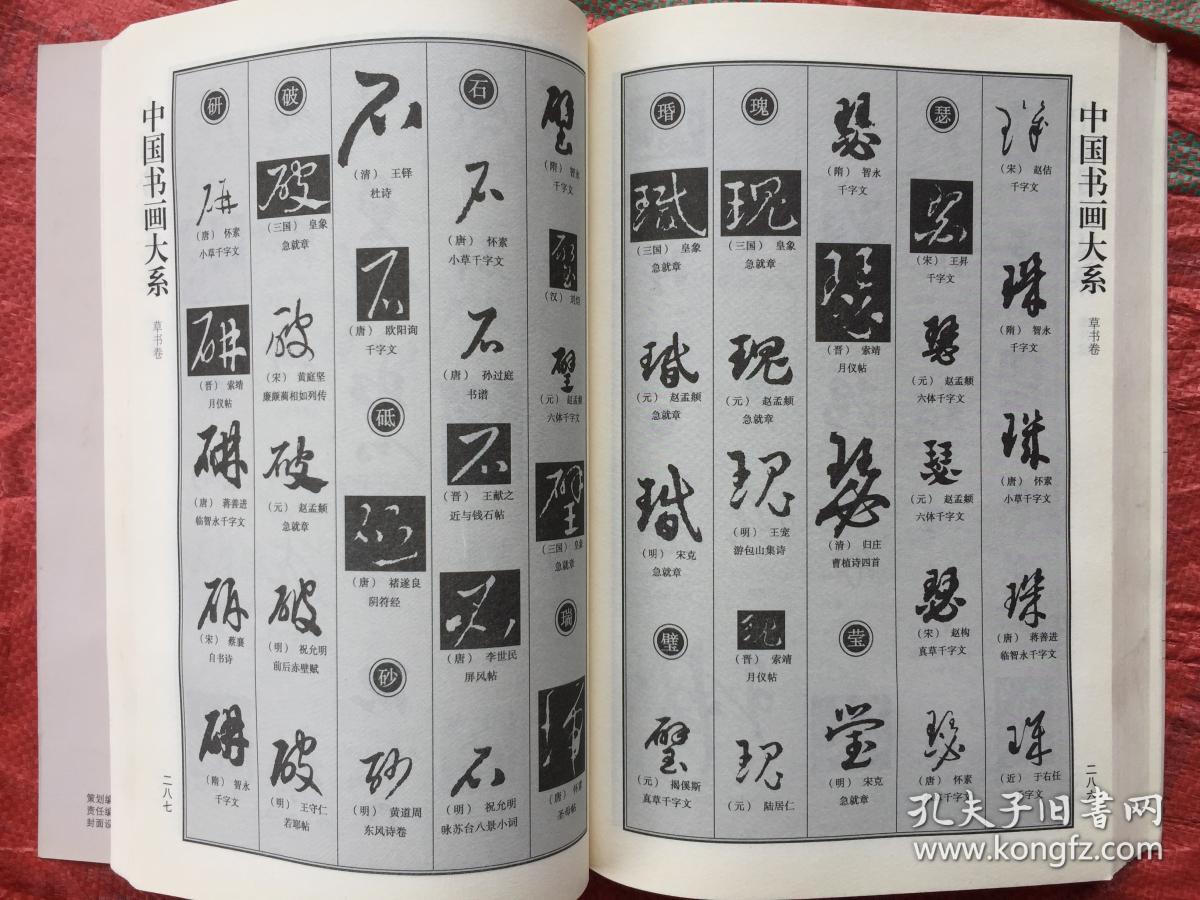 中国书画大系
草书卷
二八六
(宋) 赵佶
千字文
珠
(隋) 智永
千字文
珠
(唐) 怀素
小草千字文
珠
(唐) 蒋善进
临智永千字文
珠
(近) 于右任
千字文
瑟
(宋) 王昇
千字文
瑟
(元) 赵孟頫
六体千字文
瑟
(元) 赵孟頫
六体千字文
瑟
(宋) 赵构
真草千字文
瑟
(唐) 怀素
千字文
瑟
(隋) 智永
千字文
瑟
(晋) 索靖
月仪帖
瑟
(清) 归庄
曹植诗四首
莹
莹
(明) 宋克
急就章
瑰
瑰
(三国) 皇象
急就章
瑰
(元) 赵孟頫
急就章
瑰
(明) 王宠
游包山集诗
(晋) 索靖
月仪帖
瑰
(元) 陆居仁
瑉
(三国) 皇象
急就章
(元) 赵孟頫
急就章
(明) 宋克
急就章
璧
璧
(元) 揭傒斯
真草千字文
璧
(隋) 智永
千字文
(汉) 刘炟
璧
(元) 赵孟頫
六体千字文
璧
(三国) 皇象
急就章
瑞
(唐) 怀素
圣母帖
石
石
(唐) 怀素
小草千字文
石
(唐) 孙过庭
书谱
石
(晋) 王献之
近与钱石帖
(唐) 李世民
屏风帖
石
(明) 祝允明
咏苏台八景小词
石
(清) 王铎
杜诗
石
(唐) 欧阳询
千字文
砥
砥
(唐) 褚遂良
阴符经
砂
砂
(明) 黄道周
东风诗卷
破
破
(三国) 皇象
急就章
破
(宋) 黄庭坚
廉颇蔺相如列传
破
(元) 赵孟頫
急就章
破
(明) 祝允明
前后赤壁赋
破
(明) 王守仁
若耶帖
研
研
(唐) 怀素
小草千字文
研
(晋) 索靖
月仪帖
研
(唐) 蒋善进
临智永千字文
研
(宋) 蔡襄
自书诗
研
(隋) 智永
千字文
中国书画大系
草书卷
二八七
策划编
责任编
封面设
孔夫子旧书网
www.kongfz.com